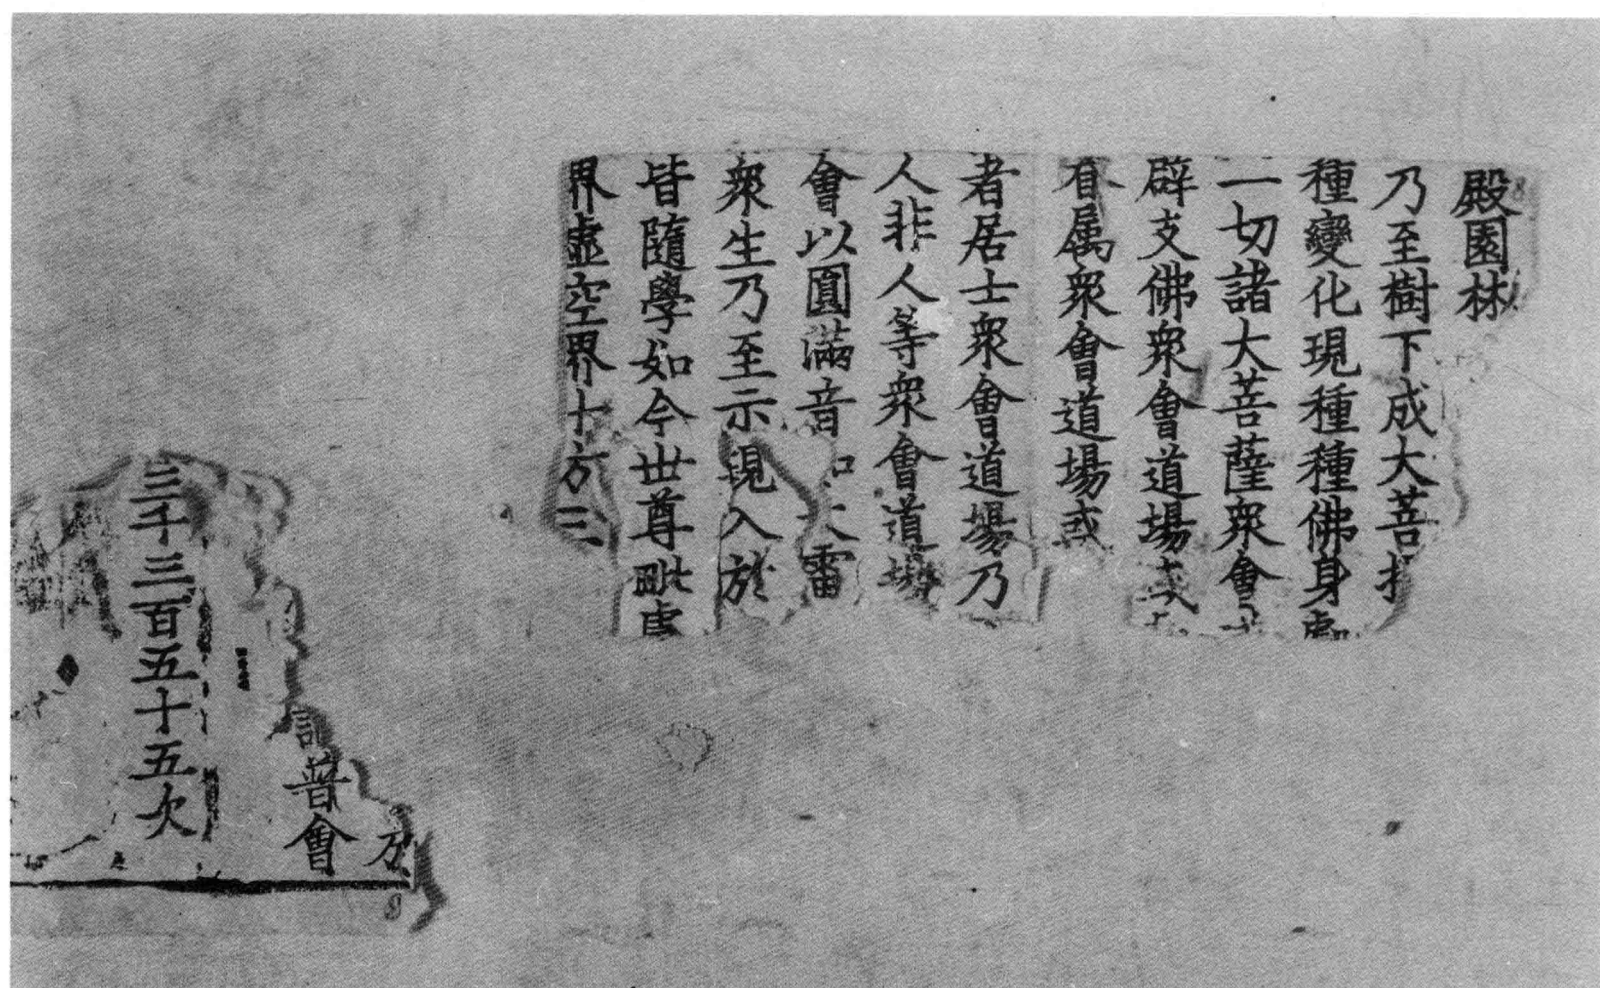 殿園林
乃至樹下成大菩
種變化現種種佛身處
一切諸大菩薩衆會
辟支佛衆會道場或
眷属衆會道場或
者居士衆會道場乃
人非人等衆會道場
會以圓滿音如大雷
衆生乃至示現入於
皆隨學如今世尊毗盧
界虛空界十方三
万
普會
三千三百五十五次